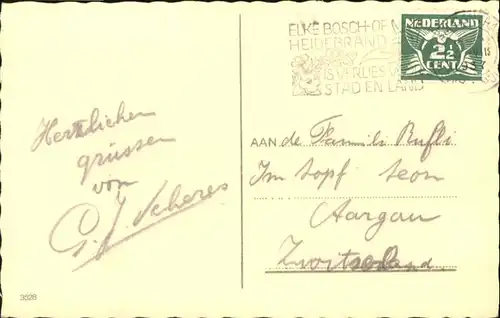 ELKE BOSCH- OF
HEIDEBRAND
IS VERLIES V
STAD EN LAND
NEDERLAND
2½
CENT
Herzlichen
grüssen
von
G. J. Scheres
AAN de Famili Rufli
Im Topf Seon
Aargau
Zwitserland.
3528